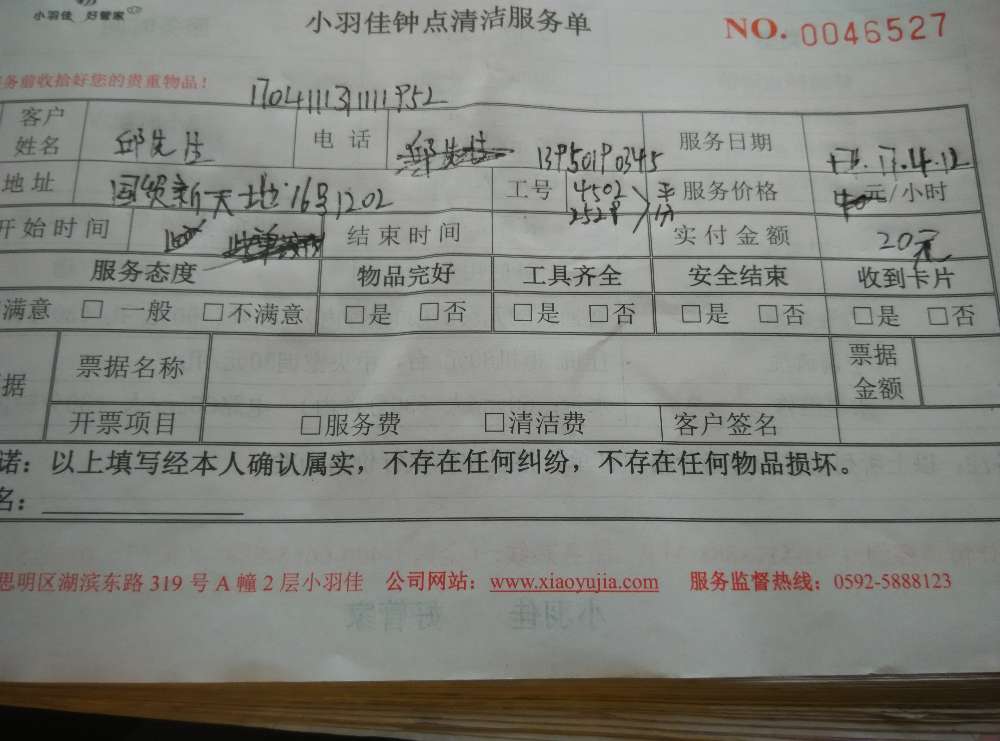 小羽佳 好管家
小羽佳钟点清洁服务单
NO. 0046527
务前收拾好您的贵重物品!
17041113111952
客户姓名 邱先生 电话 13950190345 服务日期 17.4.12
地址 国贸新天地16号1202 工号 4502 2528 平分 服务价格 元/小时
开始时间 结束时间 实付金额 20元
服务态度 物品完好 工具齐全 安全结束 收到卡片
满意 □ 一般 □不满意 □是 □否 □是 □否 □是 □否 □是 □否
据 票据名称 票据金额
开票项目 □服务费 □清洁费 客户签名
诺：以上填写经本人确认属实，不存在任何纠纷，不存在任何物品损坏。
名：
思明区湖滨东路 319 号 A 幢 2 层小羽佳 公司网站：www.xiaoyujia.com 服务监督热线：0592-5888123